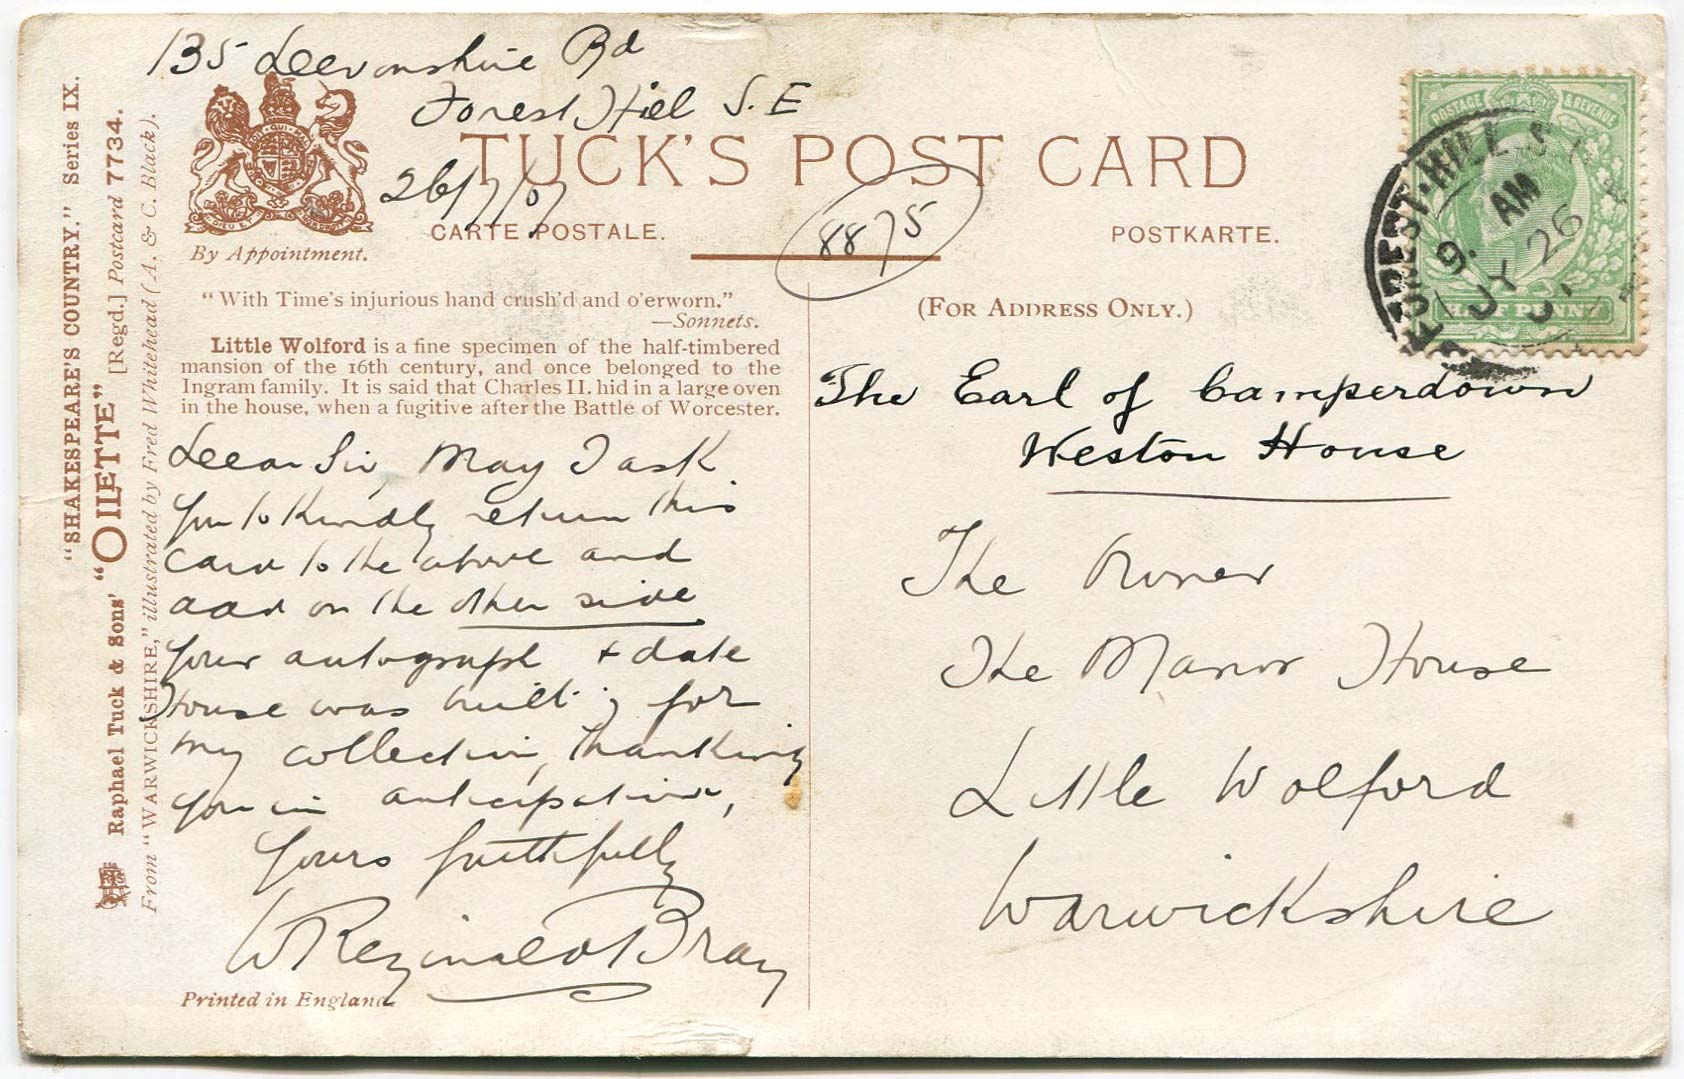 135 Devonshire Rd
Forest Hill S.E
26/7/07
TUCK'S POST CARD
CARTE POSTALE.
POSTKARTE.
8875
By Appointment.
"With Time's injurious hand crush'd and o'erworn."
—Sonnets.
Little Wolford is a fine specimen of the half-timbered
mansion of the 16th century, and once belonged to the
Ingram family. It is said that Charles II. hid in a large oven
in the house, when a fugitive after the Battle of Worcester.
Dear Sir, May I ask
you to kindly return this
card to the above and
add on the other side
your autograph + date
House was built; for
my collection, thanking
you in anticipation,
Yours faithfully
W Reginald Bray
Printed in England.
"SHAKESPEARE'S COUNTRY." Series IX.
Raphael Tuck & Sons' "OILETTE" [Regd.] Postcard 7734.
From "WARWICKSHIRE," illustrated by Fred Whitehead (A. & C. Black).
(FOR ADDRESS ONLY.)
The Earl of Camperdown
Weston House
The Owner
The Manor House
Little Wolford
Warwickshire
POSTAGE & REVENUE
HALF PENNY
FOREST-HILL S
9. AM
JY 26